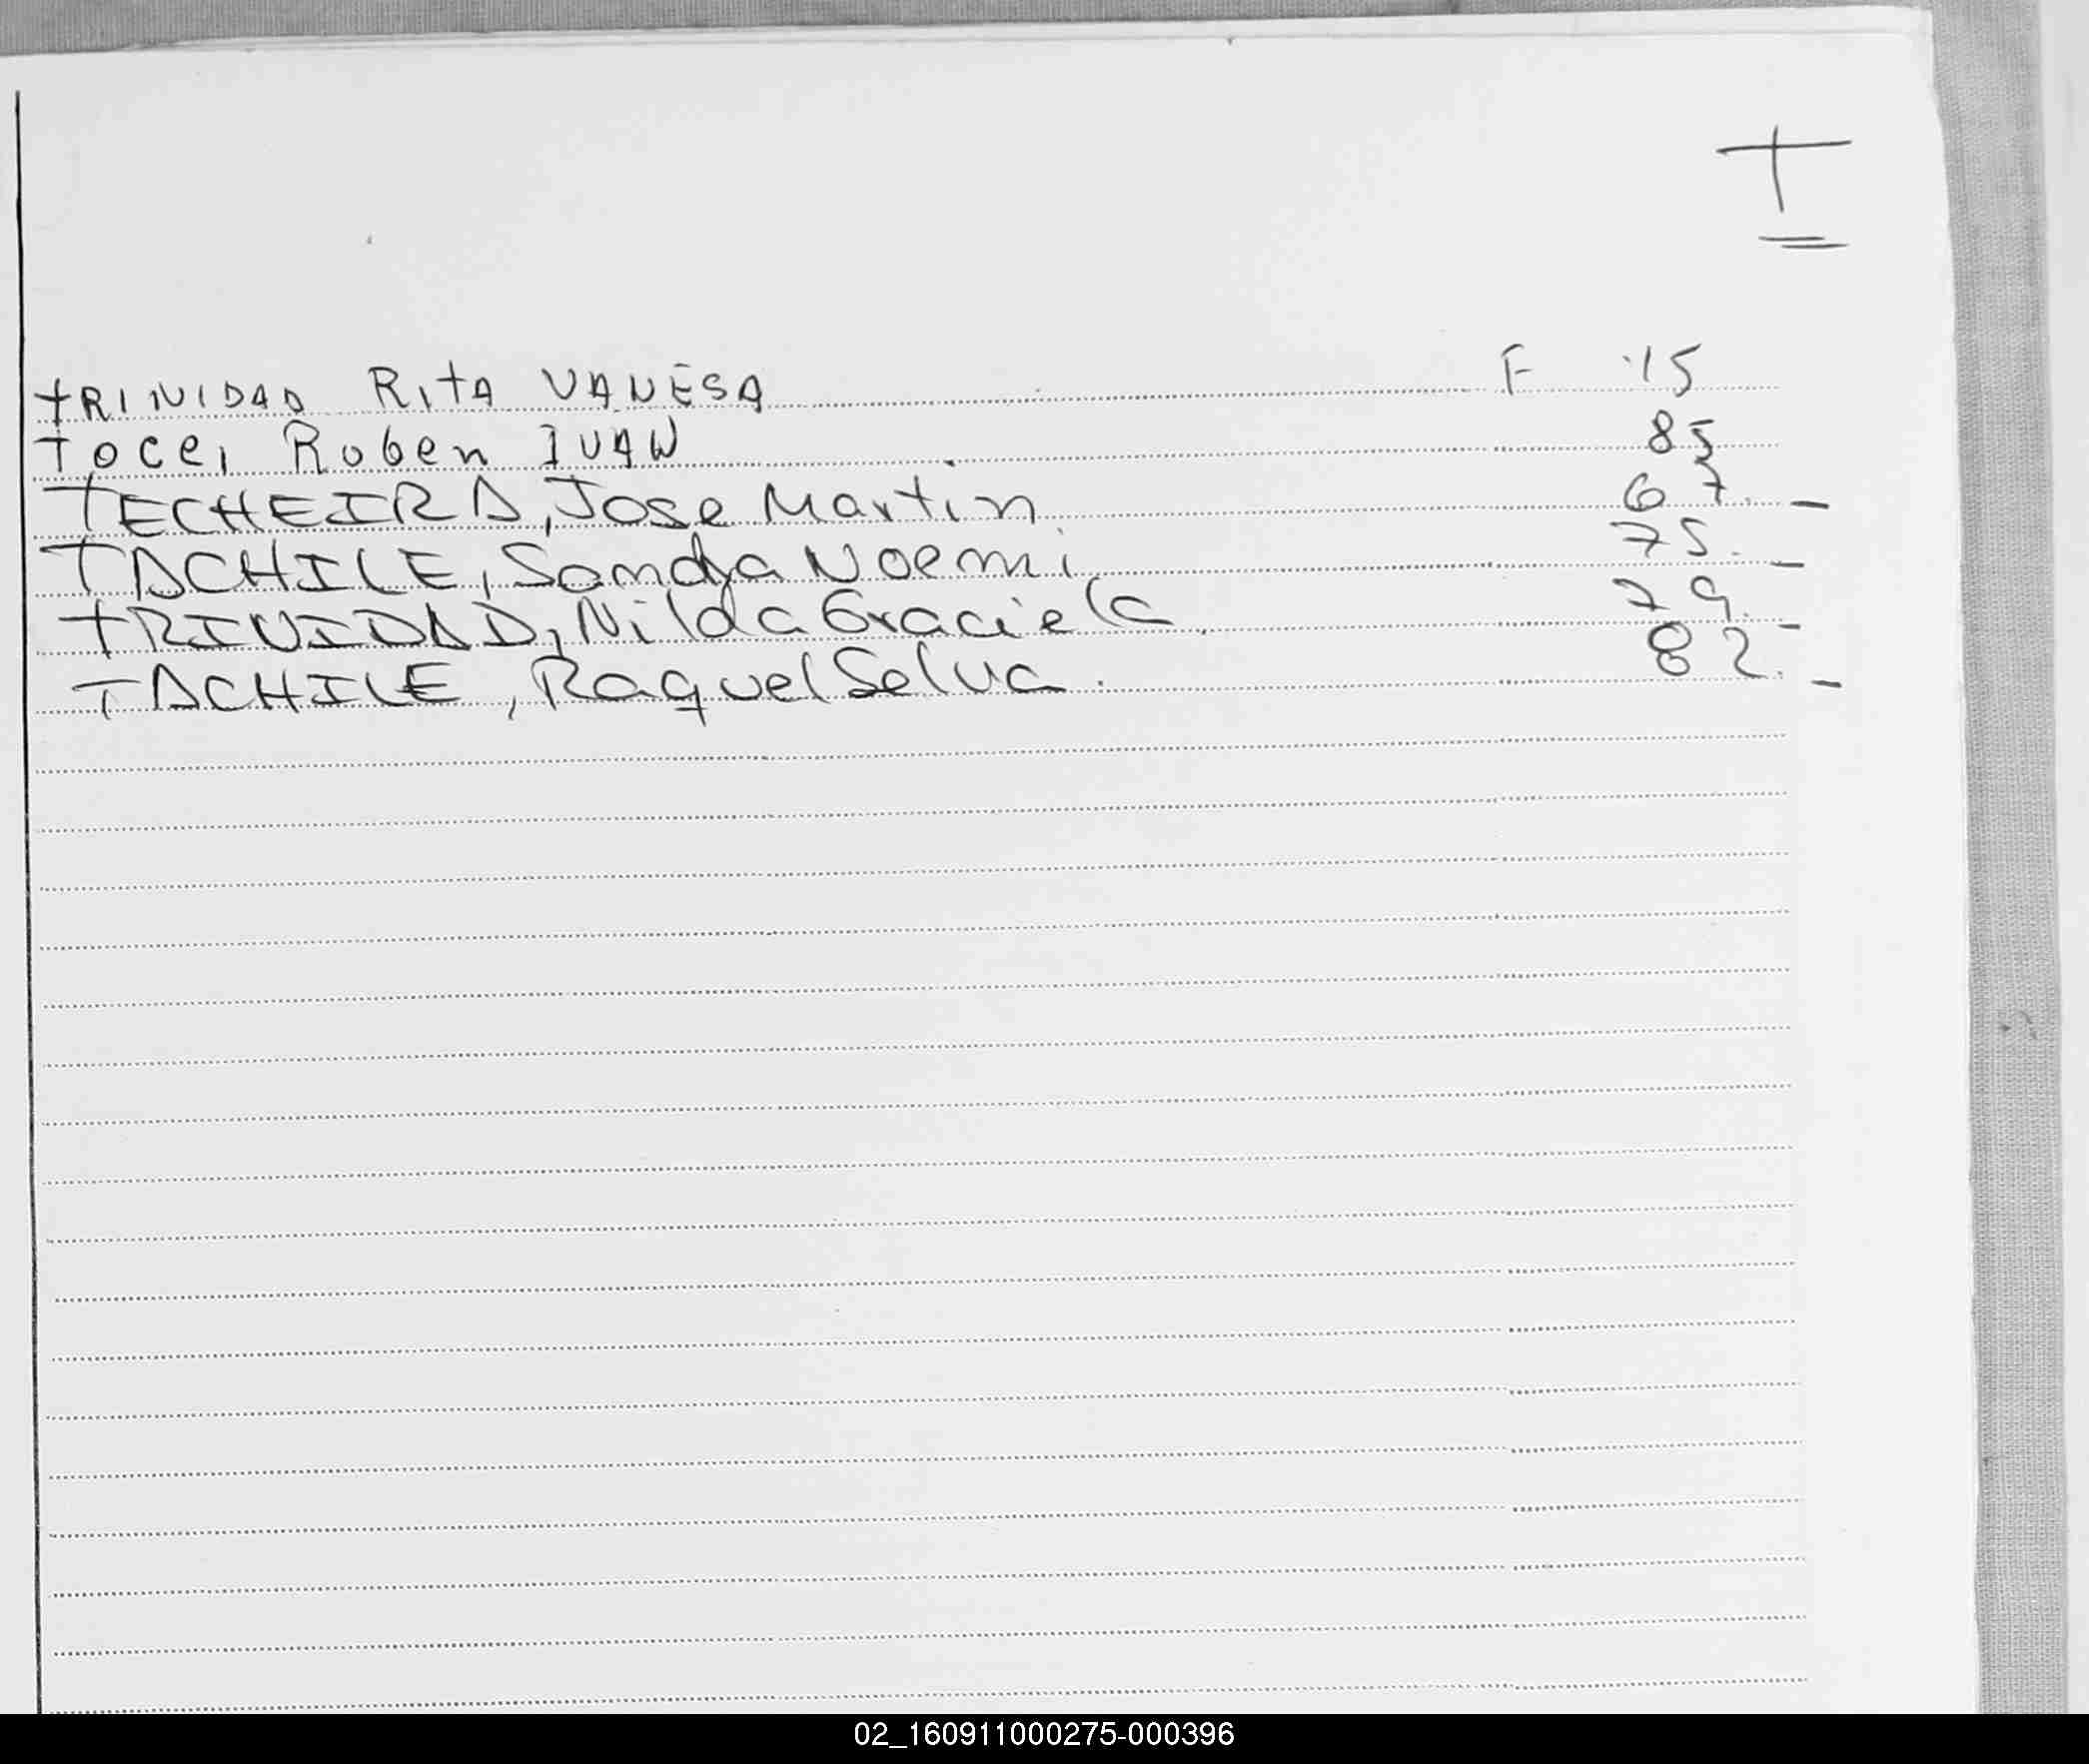 T
TRINIDAD RITA VANESA F 15
Toce, Ruben IVAN 85
TECHEIRA, Jose Martin. 67. -
TACHILE, Sandra Noemi 75. -
TRINIDAD, Nilda Graciela. 79. -
TACHILE, Raquel Selva. 82. -
02_160911000275-000396